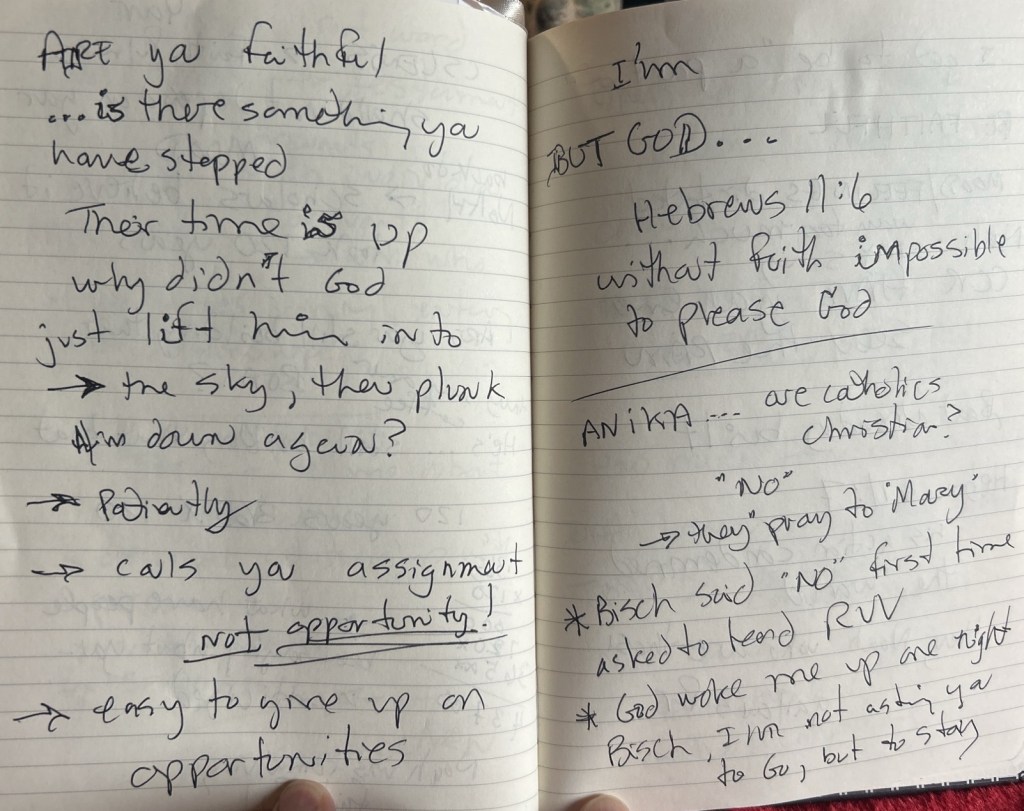 ARE ya faithful
...is there something ya
have stepped
Their time is up
why didn't God
just lift him into
→ the sky, then plunk
him down again?
→ Patiently
→ calls ya assignment
not opportunity!
→ easy to give up on
opportunities
I'm
BUT GOD....
Hebrews 11:6
without faith impossible
to please God
ANIKA ... are catholics
christian?
"NO"
→ "they" pray to "Mary"
* Bisch said "NO" first time
asked to lead RVV
* God woke me up one night
Bisch, I'm not asking ya
to Go, but to stay